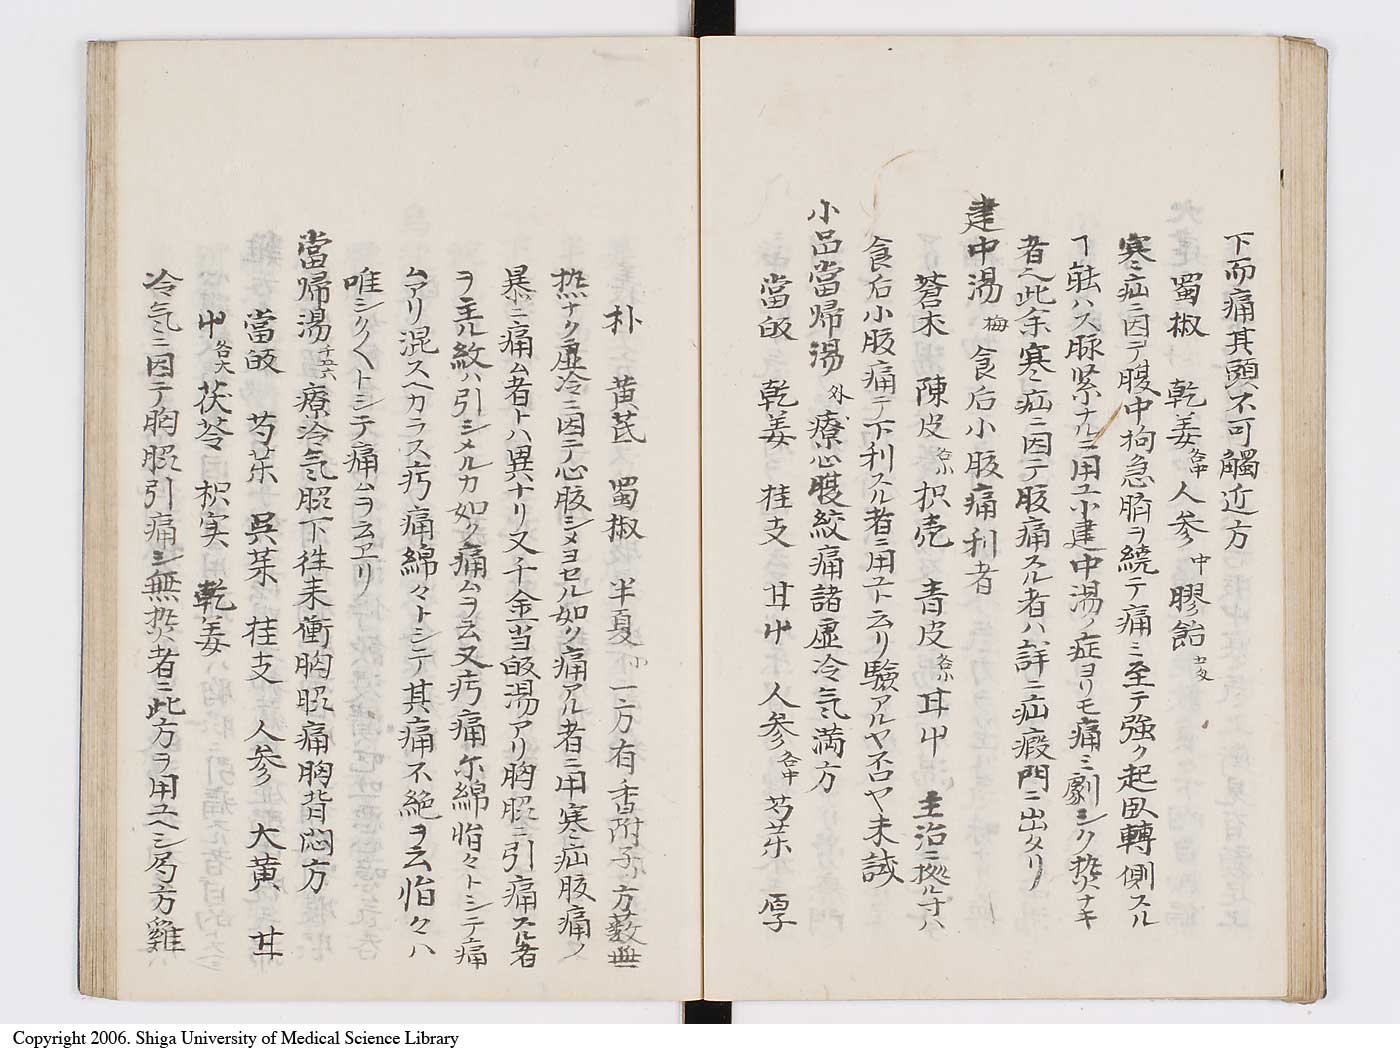 下而痛其頭不可觸近方
蜀椒 乾姜各中人参 中 膠飴
寒疝ニ因テ腹中拘急臍ヲ繞テ痛ミ至テ強ク起臥轉側スル
ヿ能ハス脉緊ナルニ用ユ小建中湯ノ症ヨリモ痛ミ劇シク熱ナキ
者也此余寒疝ニ因テ腹痛スル者ハ詳ニ疝瘕門ニ出タリ
建中湯 梅 食后小腹痛利者
蒼朮 陳皮各小枳壳 青皮各小耳屮 主治ニ拠ル寸ハ
食后小腹痛テ下利スル者ニ用ユト云リ驗アルヤ否ヤ未試
小品當帰湯 外 療心腹絞痛諸虚冷气満方
當皈 乾姜 桂支 甘屮 人参各中芍茱 厚
朴 黄芪 蜀椒 半夏小一方有香附子小方薮無
熱ナク虚冷ニ因テ心腹シメヨセル如ク痛アル者ニ用寒疝腹痛ノ
暴ニ痛ム者トハ異ナリ又千金当皈湯アリ胸腹ニ引痛スル者
ヲ主ル絞ハ引シメルカ如ク痛ムヲ云又㽲痛尓綿惱々トシテ痛
ムアリ混スヘカラス㽲痛綿々トシテ其痛不絶ヲ云惱々ハ
唯シク〱トシテ痛ムヲ云ヱリ
當帰湯千六療冷气腹下往来衝胸腹痛胸背悶方
當皈 芍茱 呉茱 桂支 人参 大黄 甘
屮各大茯苓 枳実 乾姜
冷气ニ因テ胸腹引痛シ無熱者ニ此方ヲ用ユヘシ局方雞
Copyright 2006. Shiga University of Medical Science Library